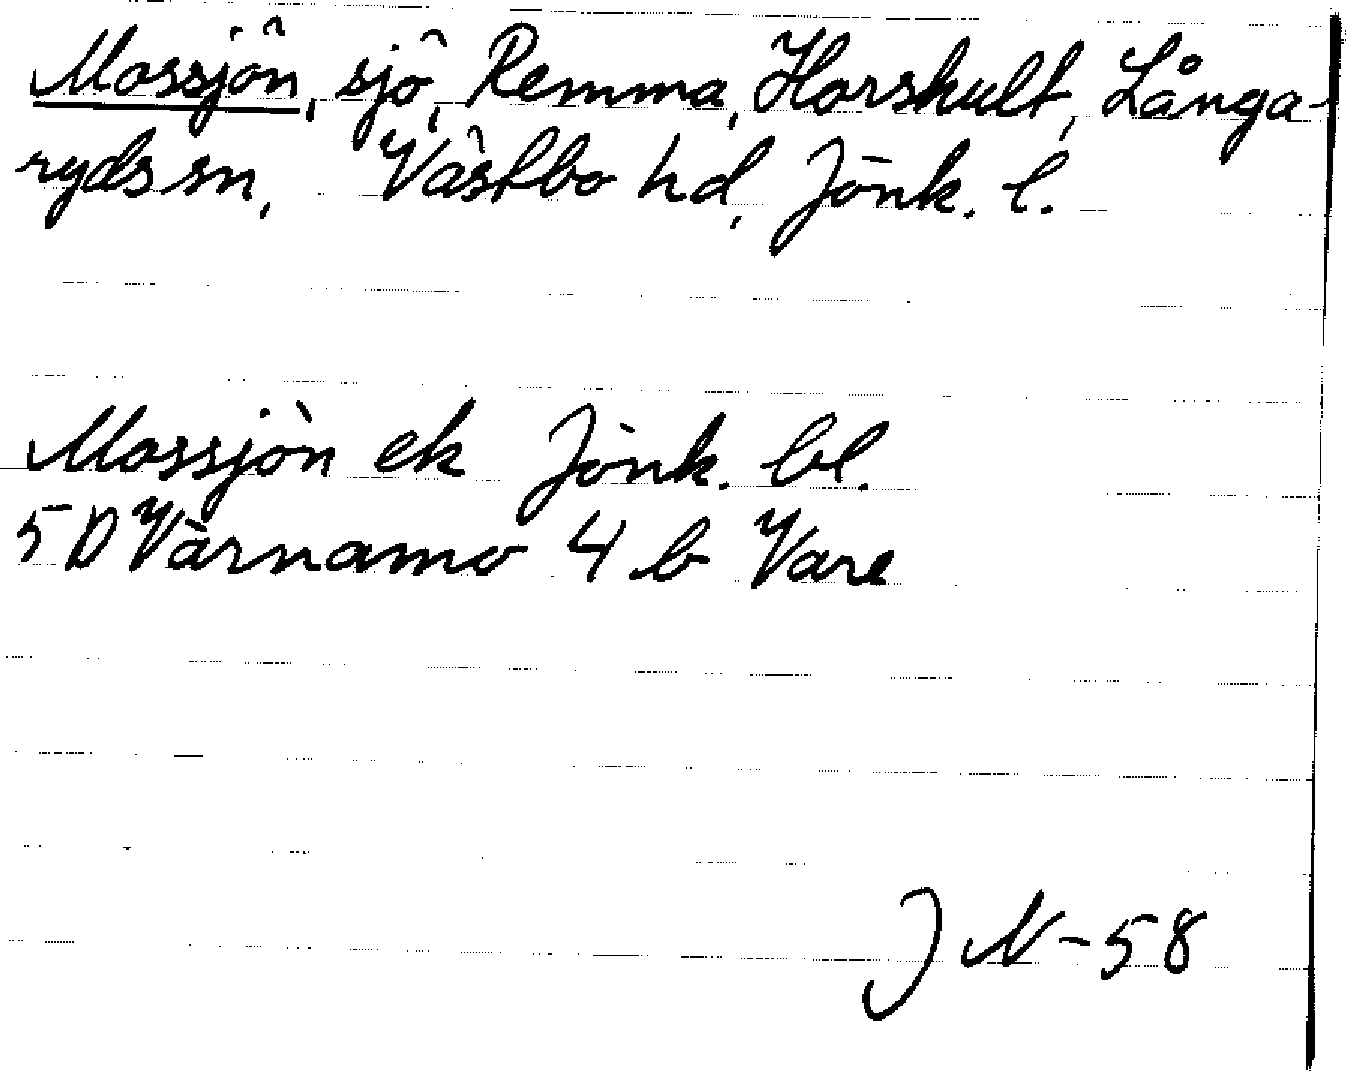 Mossjön, sjö, Remma, Horshult, Långa-
ryds sn, Västbo hd, Jönk. l.
Mossjön ek Jönk. bl.
5 D Värnamo 4 b Vare
J N-58